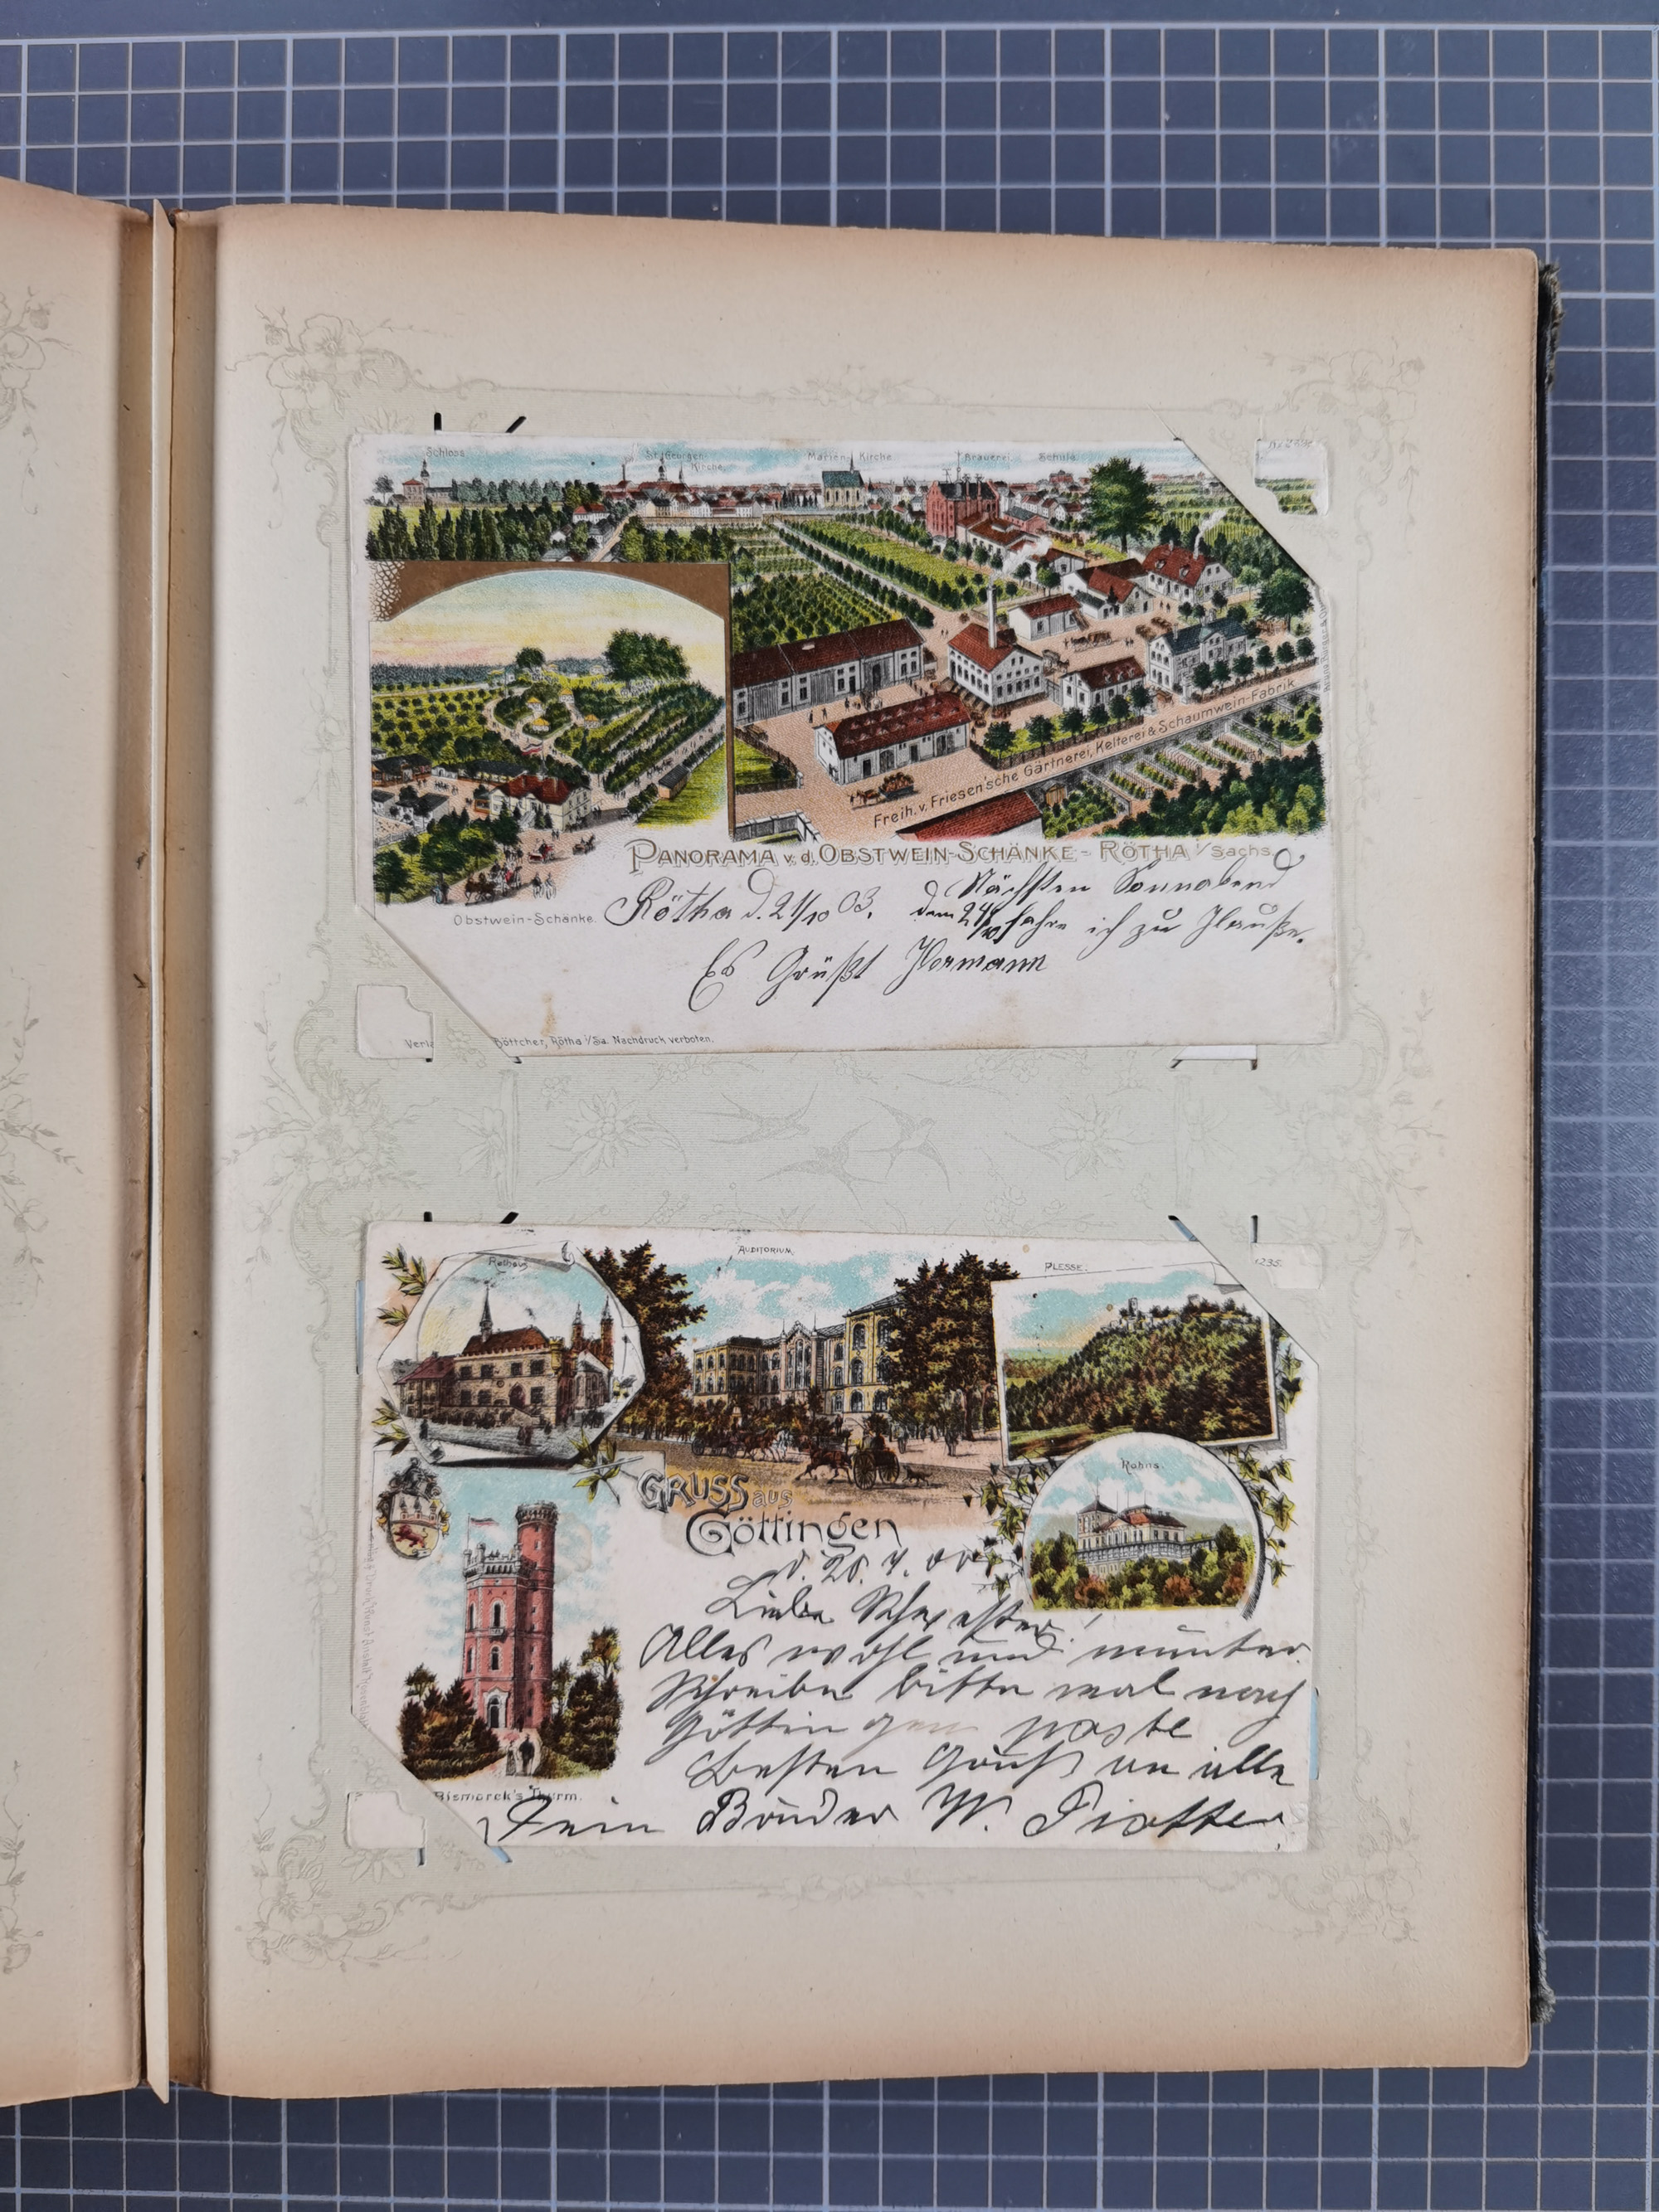 Schloss
St. Georgen-Kirche
Marien Kirche
Brauerei
Schule
Freih. v. Friesen'sche Gärtnerei, Kelterei & Schaumwein-Fabrik
PANORAMA v. d. OBSTWEIN-SCHÄNKE - RÖTHA i/Sachs.
Obstwein-Schänke.
Rötha d. 21/10 03.
Nächsten Sonnabend
dem 24/10 fahre ich zu Hause.
Es Grüßt Hermann
Böttcher, Rötha i/Sa. Nachdruck verboten.
Rathaus
AUDITORIUM.
PLESSE.
1235.
Rohns.
GRUSS aus
Göttingen
Liebe Schwester!
Alles wohl und munter.
Schreibe bitte mal nach
Göttingen
Besten Gruß an alle
Dein Bruder W.
Bismarck's Thurm.